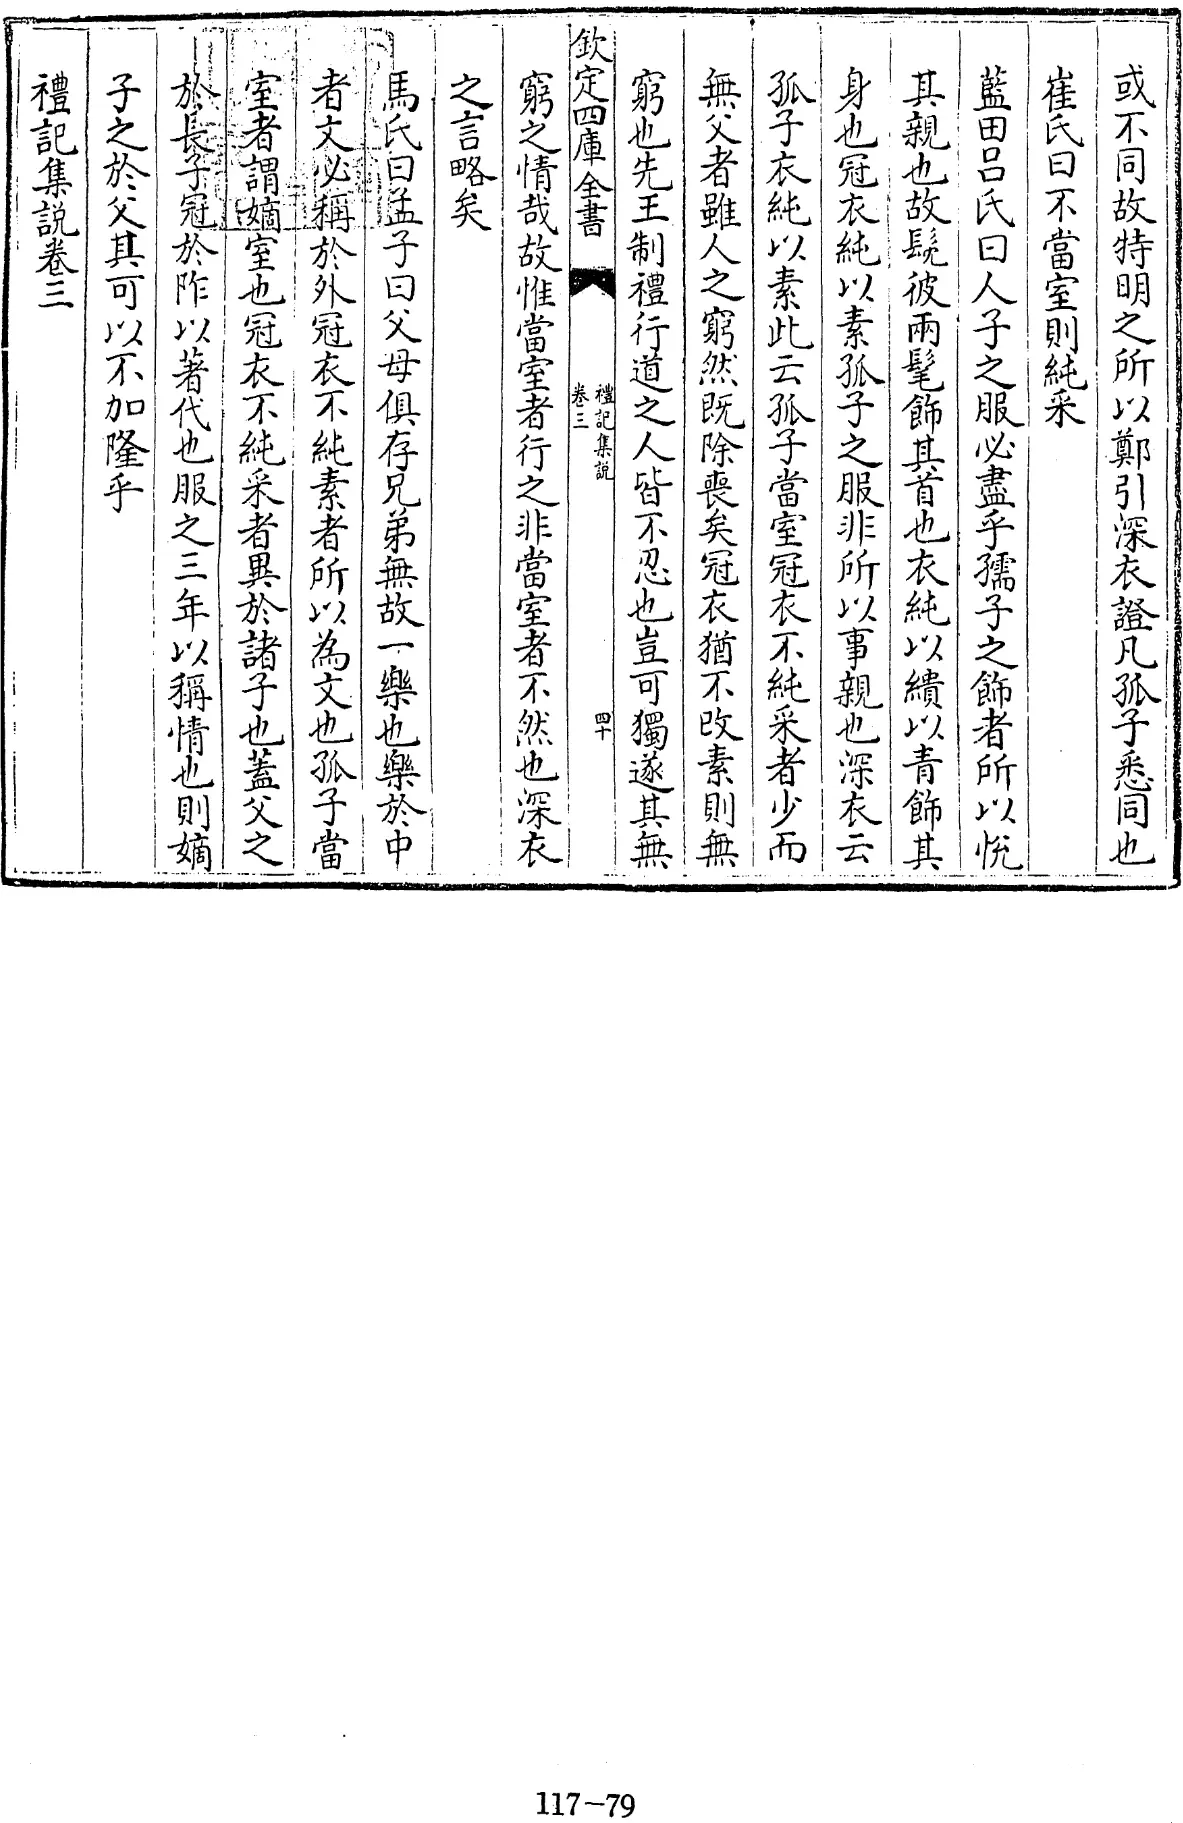 或不同故特明之所以鄭引深衣證凡孤子悉同也
崔氏曰不當室則純采
藍田呂氏曰人子之服必盡乎孺子之飾者所以悅
其親也故髧彼兩髦飾其首也衣純以繢以青飾其
身也冠衣純以素孤子之服非所以事親也深衣云
孤子衣純以素此云孤子當室冠衣不純采者少而
無父者雖人之窮然既除喪矣冠衣猶不改素則無
窮也先王制禮行道之人皆不忍也豈可獨遂其無
欽定四庫全書
禮記集説
卷三
四十
窮之情哉故惟當室者行之非當室者不然也深衣
之言略矣
馬氏曰孟子曰父母俱存兄弟無故一樂也樂於中
者文必稱於外冠衣不純素者所以為文也孤子當
室者謂嫡室也冠衣不純采者異於諸子也蓋父之
於長子冠於阼以著代也服之三年以稱情也則嫡
子之於父其可以不加隆乎
禮記集説卷三
117-79